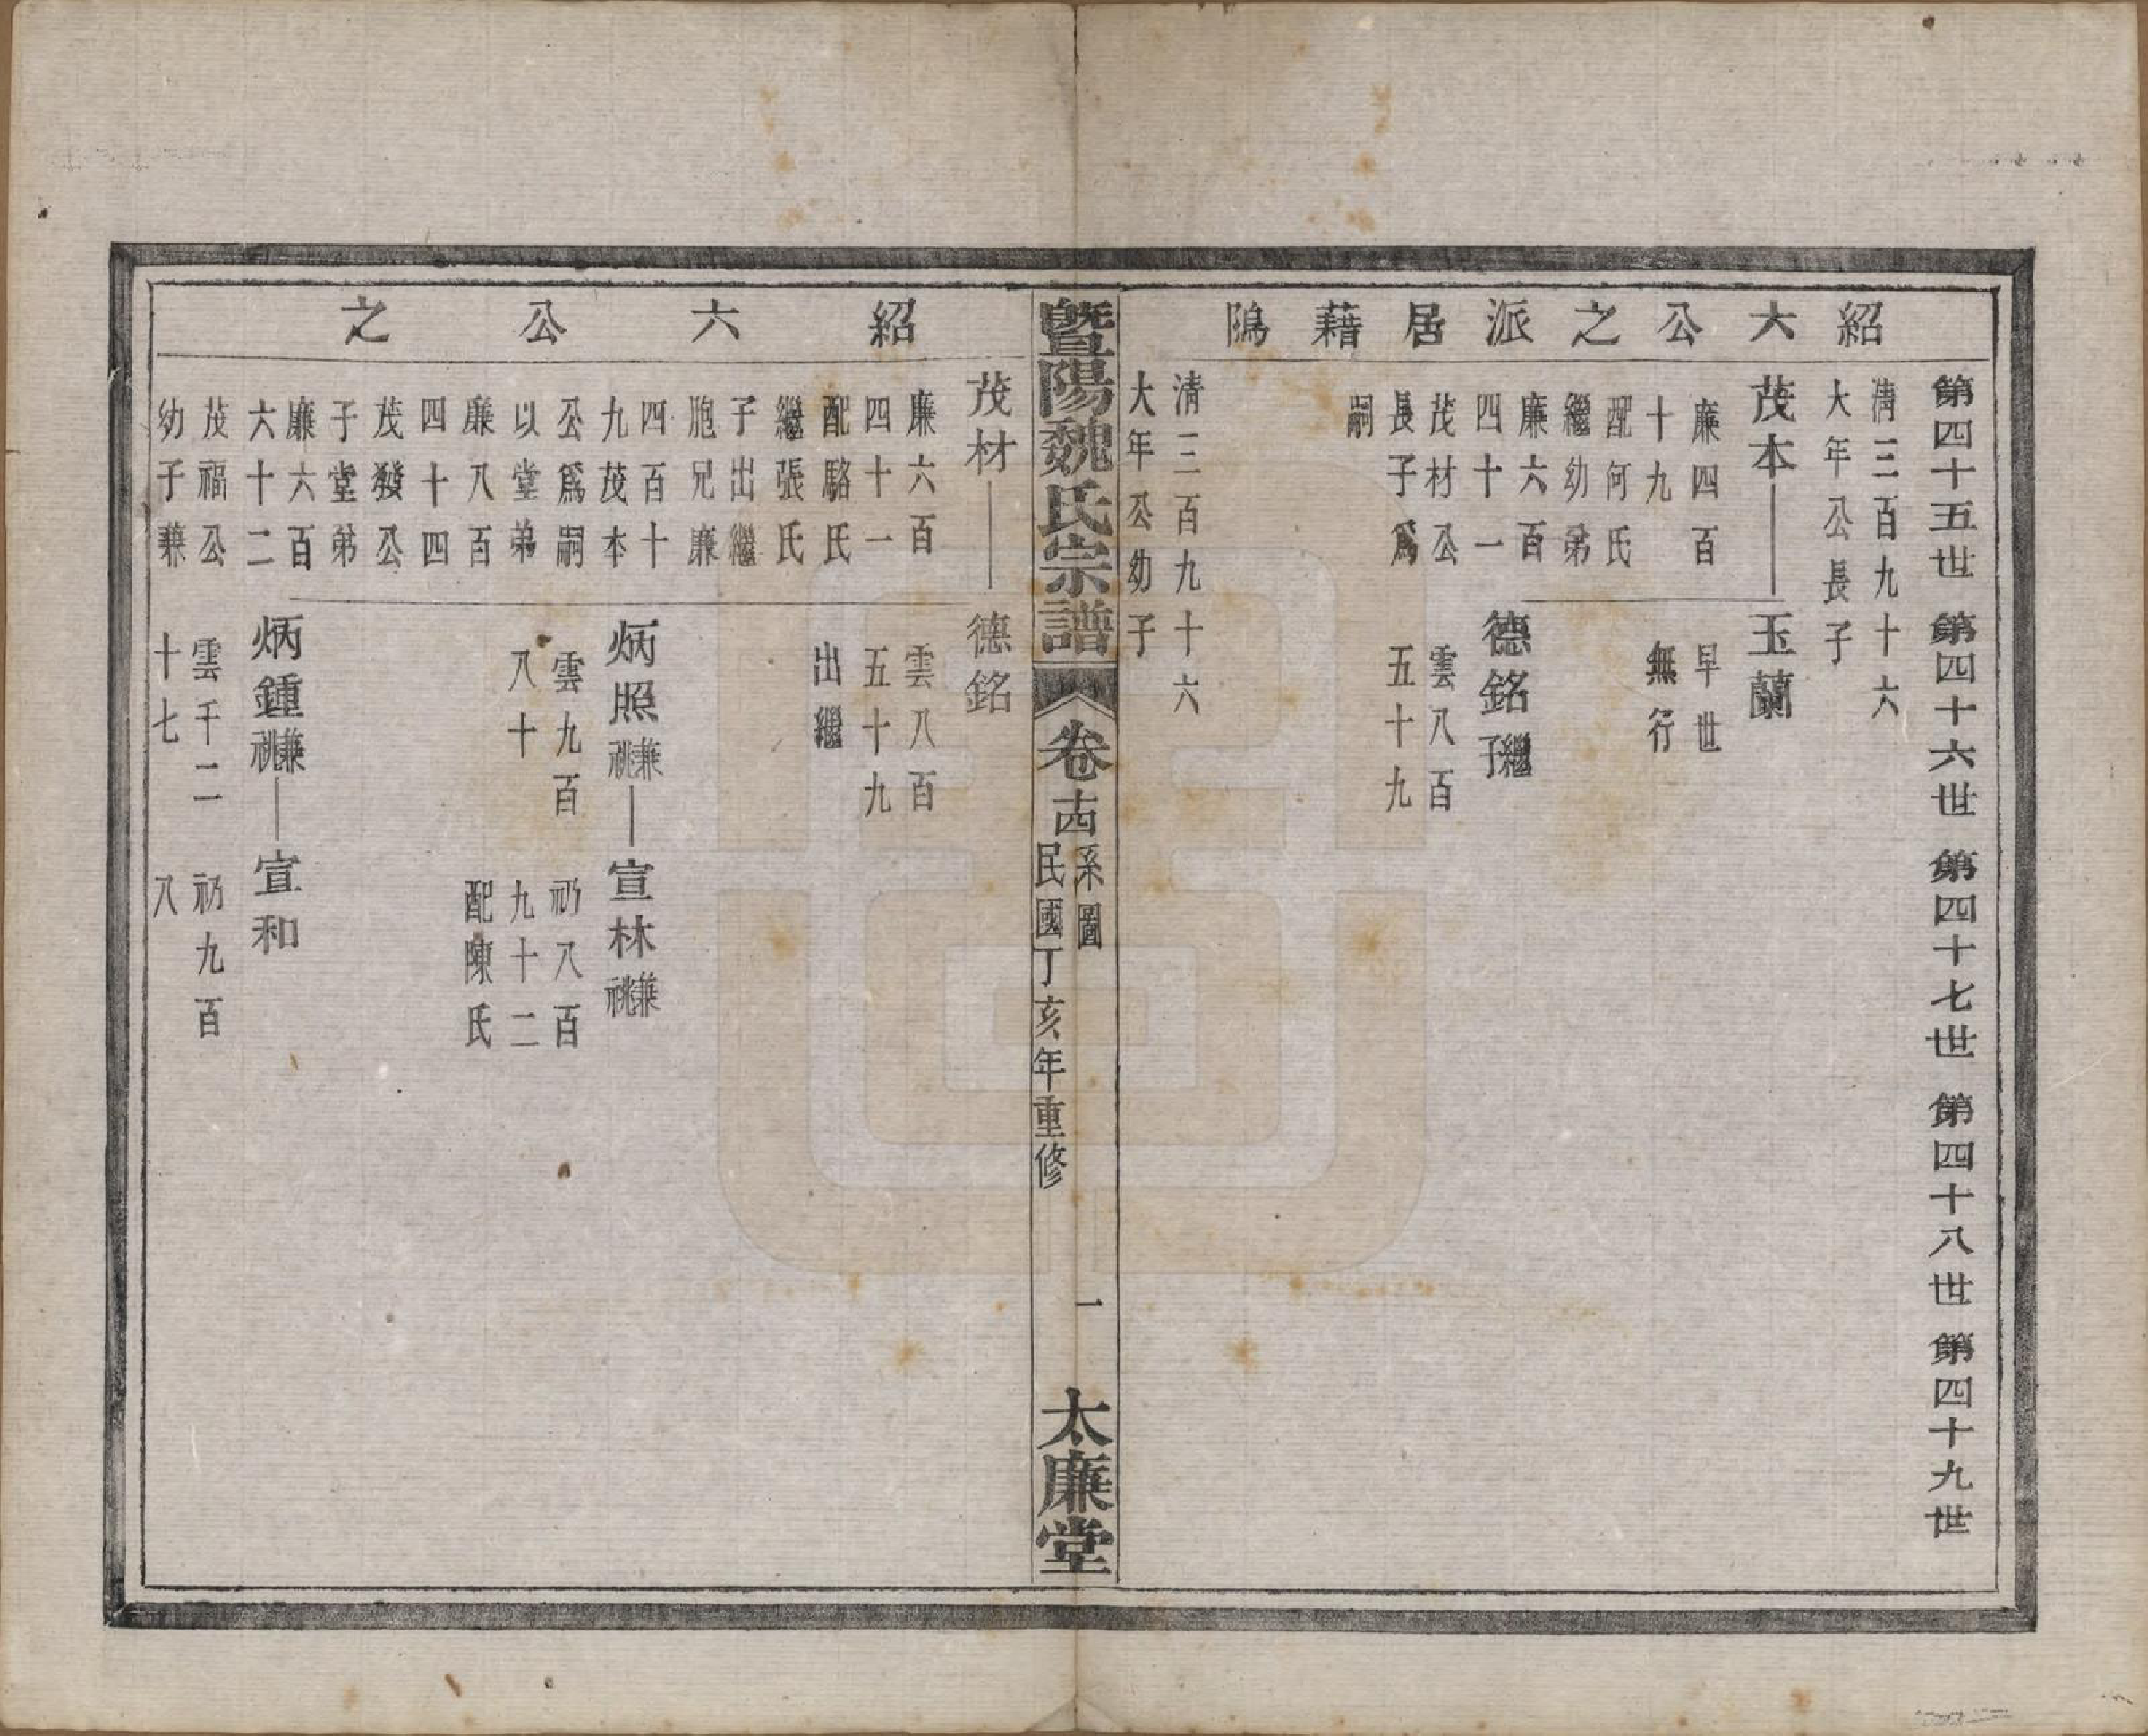 紹六公之派居藉隝
第四十五世 第四十六世 第四十七世 第四十八世 第四十九世
清三百九十六
大年公長子
茂本 玉蘭
廉四百
十九
配何氏
繼幼弟
廉六百
四十一
茂材公
長子爲
嗣
早世
無行
德銘繼子
雲八百
五十九
清三百九十六
大年公幼子
暨陽魏氏宗譜 卷十四 系圖 民國丁亥年重修 一 太廉堂
紹六公之
茂材 德銘
廉六百
四十一
配駱氏
繼張氏
子出繼
胞兄廉
四百十
九茂本
公爲嗣
以堂弟
廉八百
四十四
茂發公
子堂弟
廉六百
六十二
茂福公
幼子兼
雲八百
五十九
出繼
炳照兼祧 宣林兼祧
雲九百
八十
礽八百
九十二
配陳氏
炳鍾兼祧 宣和
雲千二
十七
礽九百
八